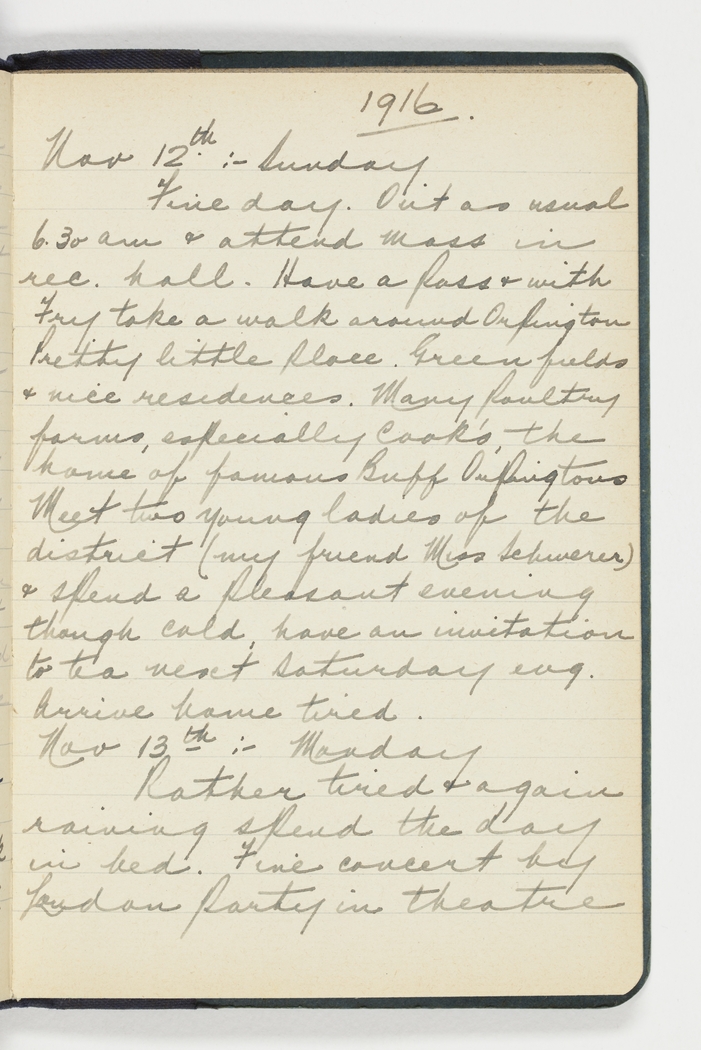 1916.
Nov 12th :- Sunday
Fine day. Out as usual
6.30 am & attend Mass in
rec. hall. Have a pass & with
Fry take a walk around Orpington
Pretty little place. Green fields
& nice residences. Many poultry
farms, especially Cook's, the
home of famous Buff Orpingtons
Meet two young ladies of the
district (my friend Miss Schwerer)
& spend a pleasant evening
though cold, have an invitation
to tea next Saturday evg.
Arrive home tired.
Nov 13th :- Monday
Rather tired & again
raining spend the day
in bed. Fine concert by
London Party in theatre